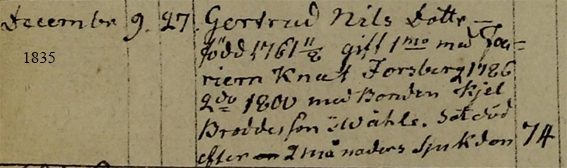 December 9. 27. Gertrud Nils Dotter
1835
född 1761 11/8 gift 1mo med Ga-
riern Knut Forsberg 1786
2do 1800 med Bonden Kjel
Broddesson i Wåhle. Sot död
efter 2 månaders sjukdom 74